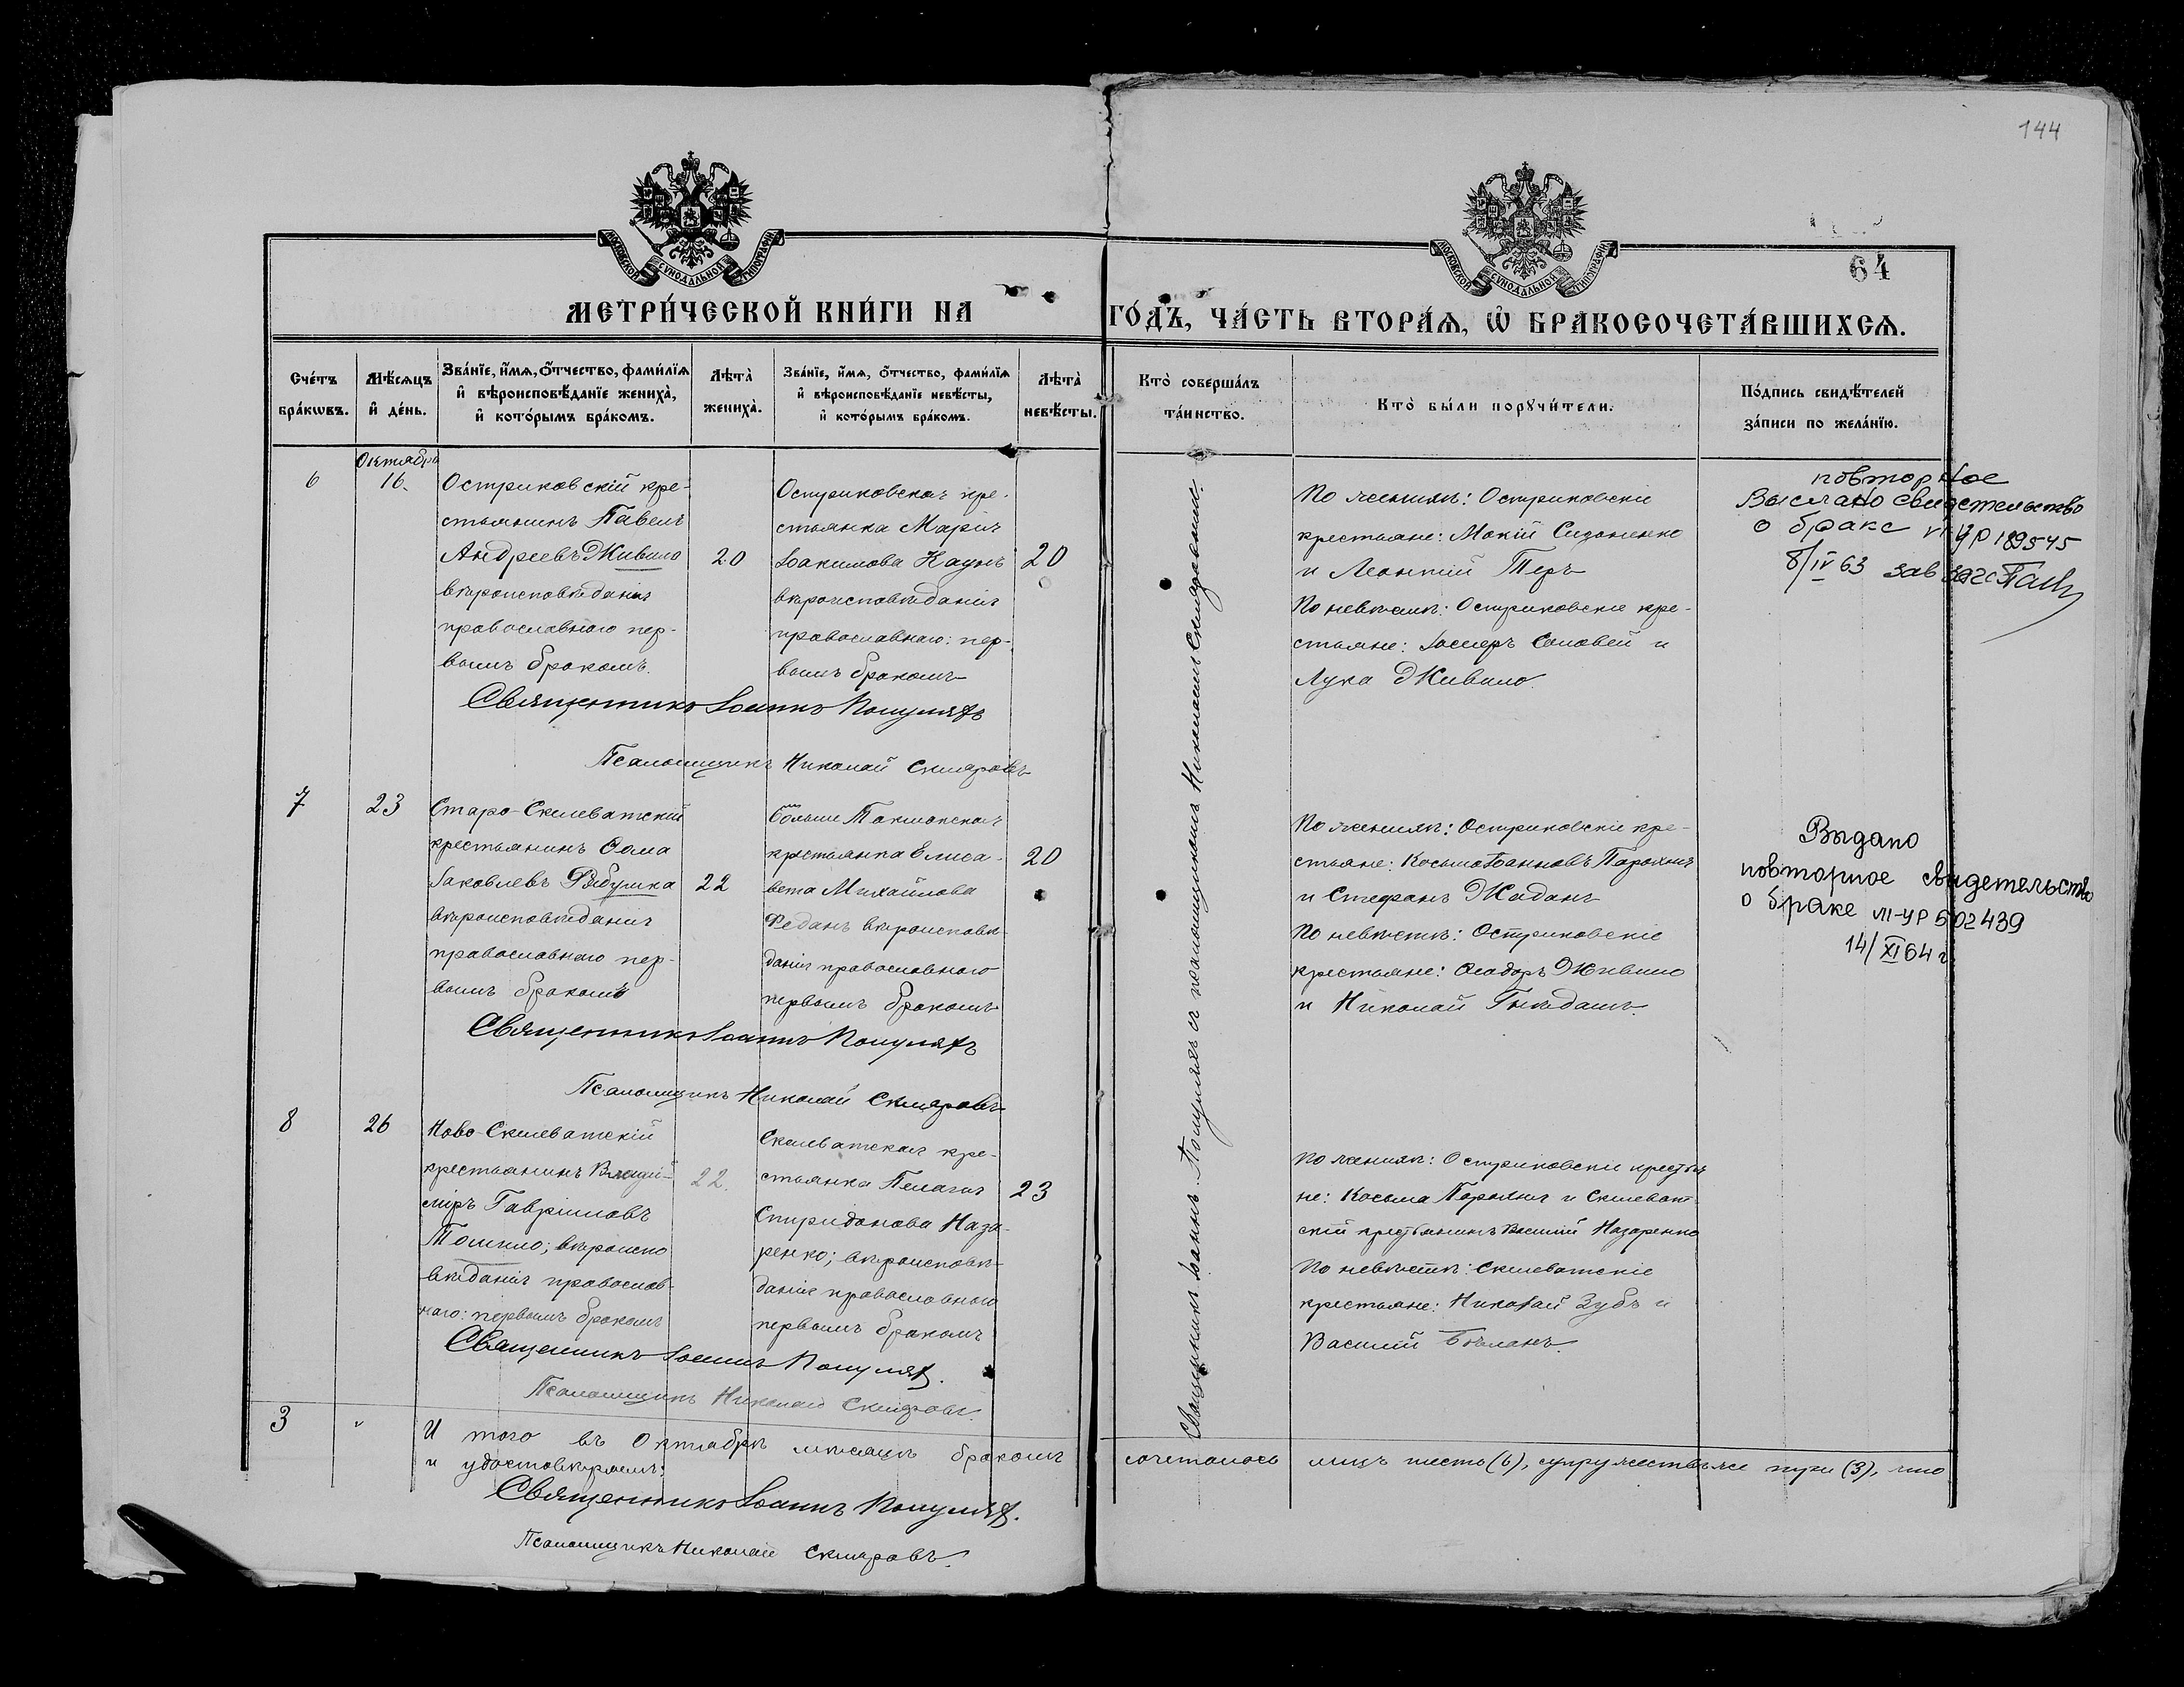 144
МОСКОВСКОЙ СУНОДАЛЬНОЙ ТИПОГРАФІИ
МОСКОВСКОЙ СУНОДАЛЬНОЙ ТИПОГРАФІИ
64
МЕТРИ́ЧЕСКОЙ КНИ́ГИ НА ГО́ДЪ, ЧА́СТЬ ВТОРА́Ѧ, Ѽ БРАКОСОЧЕТА́ВШИХСѦ.
Сче́тъ бра́кѡвъ.
Мѣ́сѧцъ и҆ де́нь.
Зва́нїе, и҆́мѧ, ѻ҆́тчество, фами́лїѧ и҆ вѣроисповѣ́данїе жениха̀, и҆ кото́рымъ бра́комъ.
Лѣта̀ жениха̀.
Зва́нїе, и҆́мѧ, ѻ҆́тчество, фами́лїѧ и҆ вѣроисповѣ́данїе невѣ́сты, и҆ кото́рымъ бра́комъ.
Лѣта̀ невѣ́сты.
Кто̀ соверша́лъ та́инство.
Кто̀ бы́ли порꙋчи́тели.
По́дпись свидѣ́телей за́писи по жела́нїю.
Октября
6
16.
Остриковскій кре-
стьянинъ Павелъ
Андреевъ Живило
вѣроисповѣданія
православнаго пер-
вымъ бракомъ.
20
Остриковская кре-
стьянка Марія
Іоакимова
вѣроисповѣданія
православнаго: пер-
вымъ бракомъ
20
По женихѣ: Остриковскіе
крестьяне: Мокій Сидоненко
и Леонтій Теръ
По невѣстѣ: Остриковскіе кре-
стьяне: Соловей и
Лука Живило.
повторное
Выслано свидетельство
о браке УР 189545
8/IV 63 зав загс
Священникъ Іоаннъ
Псаломщикъ Николай Скляровъ
Священникъ Іоаннъ съ псаломщикомъ
7
23
Старо-Скелеватскій
крестьянинъ Ѳома
Іаковлевъ Рябушка
вѣроисповѣданія
православнаго пер-
вымъ бракомъ
22
больше Токмакская
крестьянка Елиса-
вета Михайлова
Федань вѣроисповѣ-
данія православнаго
первымъ бракомъ
20
По женихѣ: Остриковскіе кре-
стьяне: Косьма Іоанновъ
и Стефанъ Жадань
По невѣстѣ: Остриковскіе
крестьяне: Ѳеодоръ Живило
и Николай Гнѣдашъ.
Выдано
повторное свидетельство
о браке УР 502439
14/XI 64 г
Священникъ Іоаннъ
Псаломщикъ Николай Скляровъ
8
26
Ново-Скелеватскій
крестьянинъ Влади-
міръ Гавріиловъ
Томило; вѣроиспо
вѣданія православ-
наго: первымъ бракомъ
22.
Скелеватская кре-
стьянка Пелагія
Спиридонова Наза-
ренко; вѣроисповѣ-
данія православнаго
первымъ бракомъ
23
По женихѣ: Остриковскіе крестья
не: Косьма и Скелеват-
скій крестьянинъ Василій Назаренко
По невѣстѣ: Скелеватскіе
крестьяне: Николай Зубъ и
Василій
Священникъ Іоаннъ
Псаломщикъ Николай Скляровъ.
3
И того въ Октябрѣ мѣсяцѣ бракомъ сочеталось лицъ шесть (6), супружествъ же три (3), что
и удостовѣряемъ:
Священникъ Іоаннъ
Псаломщикъ Николай Скляровъ.